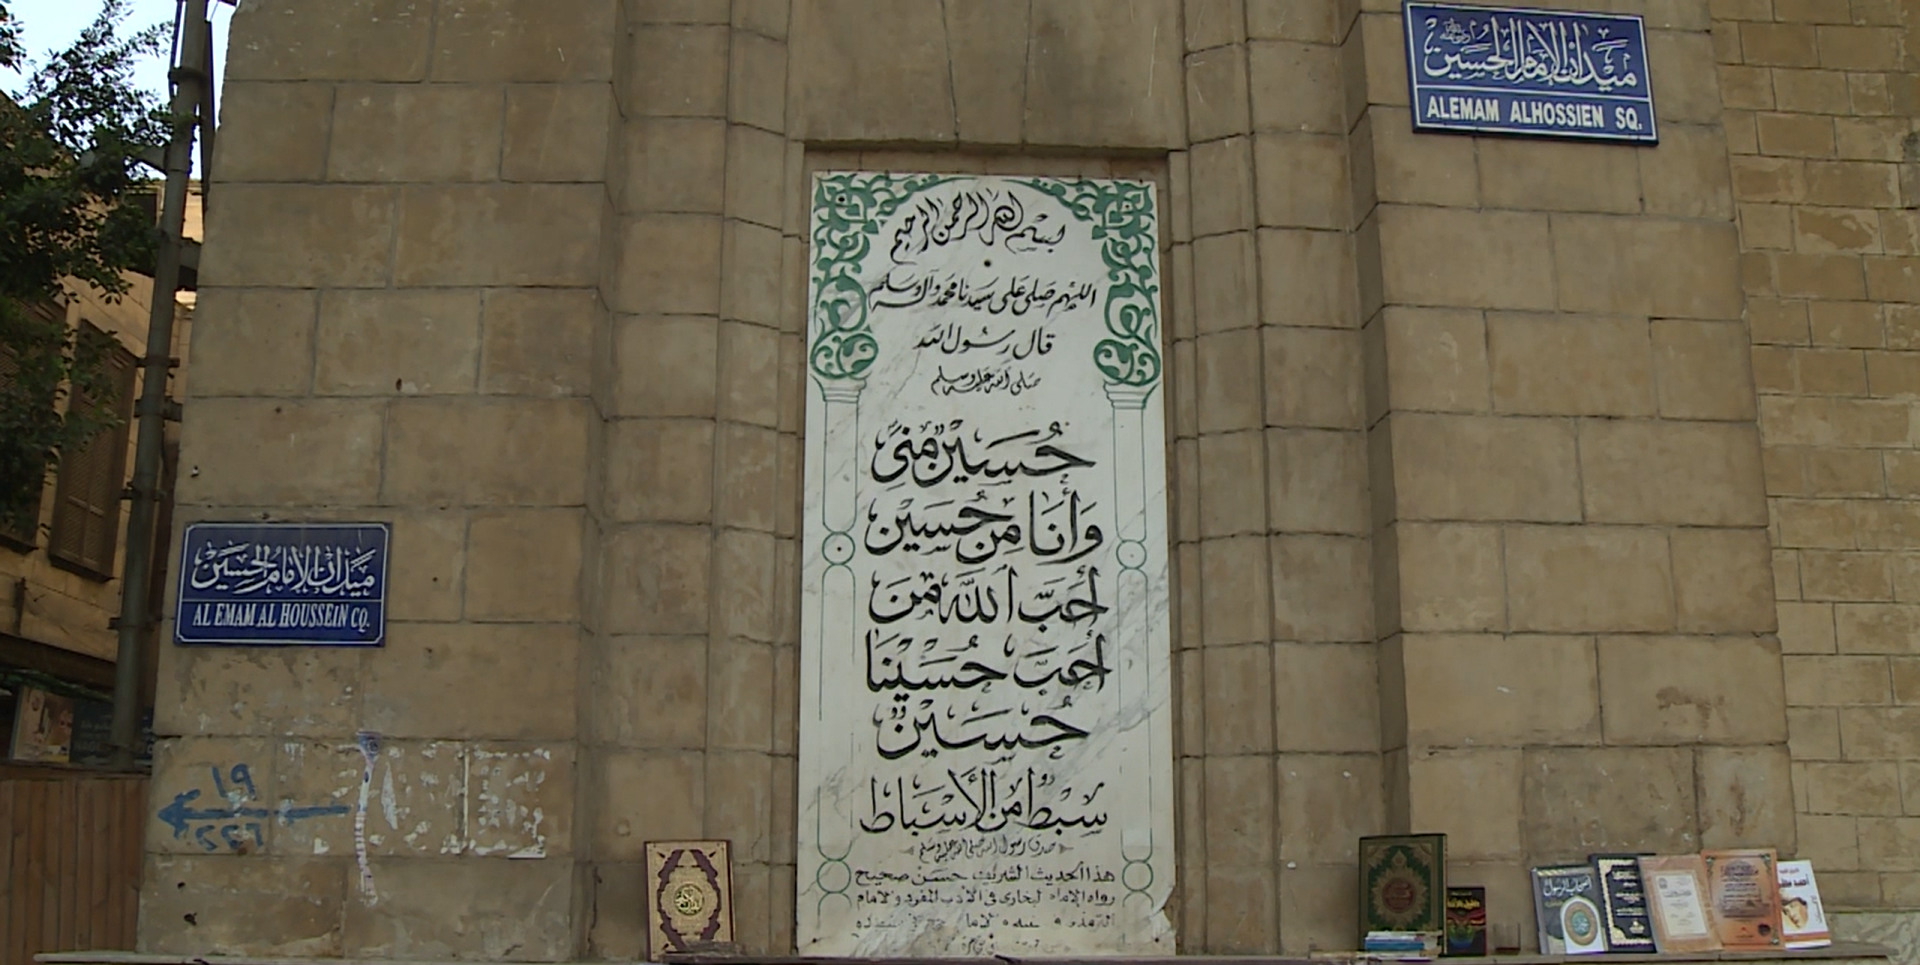 ميدان الإمام الحسين
ALEMAM ALHOSSIEN SQ.
بسم الله الرحمن الرحيم
اللهم صلى على سيدنا محمد وآله وسلم
قال رسول الله
صلى الله عليه وسلم
حُسَيْنٌ مِنِّى
وَأَنَا مِنْ حُسَيْن
أَحَبَّ اللَّهَ مَنْ
أَحَبَّ حُسَيْنَا
حُسَيْنٌ
سِبْطٌ مِنَ الأَسْبَاط
صدق رسول الله صلى الله عليه وسلم
هذا الحديث الشريف حسن صحيح
رواه الإمام البخارى فى الأدب المفرد والامام
ميدان الإمام الحسين
AL EMAM AL HOUSSEIN CQ.
١٩
أصحاب الرسول